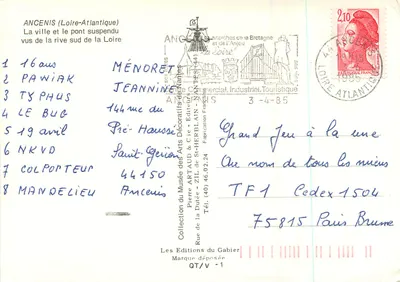 ANCENIS (Loire-Atlantique)
La ville et le pont suspendu
vus de la rive sud de la Loire
1 16 ans
2 PAWIAK
3 TYPHUS
4 LE BUG
5 19 avril
6 NKVD
7 COLPORTEUR
8 MANDELIEU
MÉNORET
JEANNINE
144 rue du
Pré-Haussé
Saint-Géréon
44150
Ancenis
Collection du Musée des Arts Décoratifs de Nantes
Pierre ARTAUD & Cie - Editeurs
Rue de la Dutée - ZIL de St-HERBLAIN
Tél. (40) 46.02.24
Les Editions du Gabier
Marque déposée
QT/V - 1
et de l'Anjou
Commercial, Industriel, Touristique
3-4-85
2,10
LOIRE ATLANTIQUE
Grand Jeu à la une
Au nom de tous les miens
TF1 Cedex 1504
75815 Paris Brune